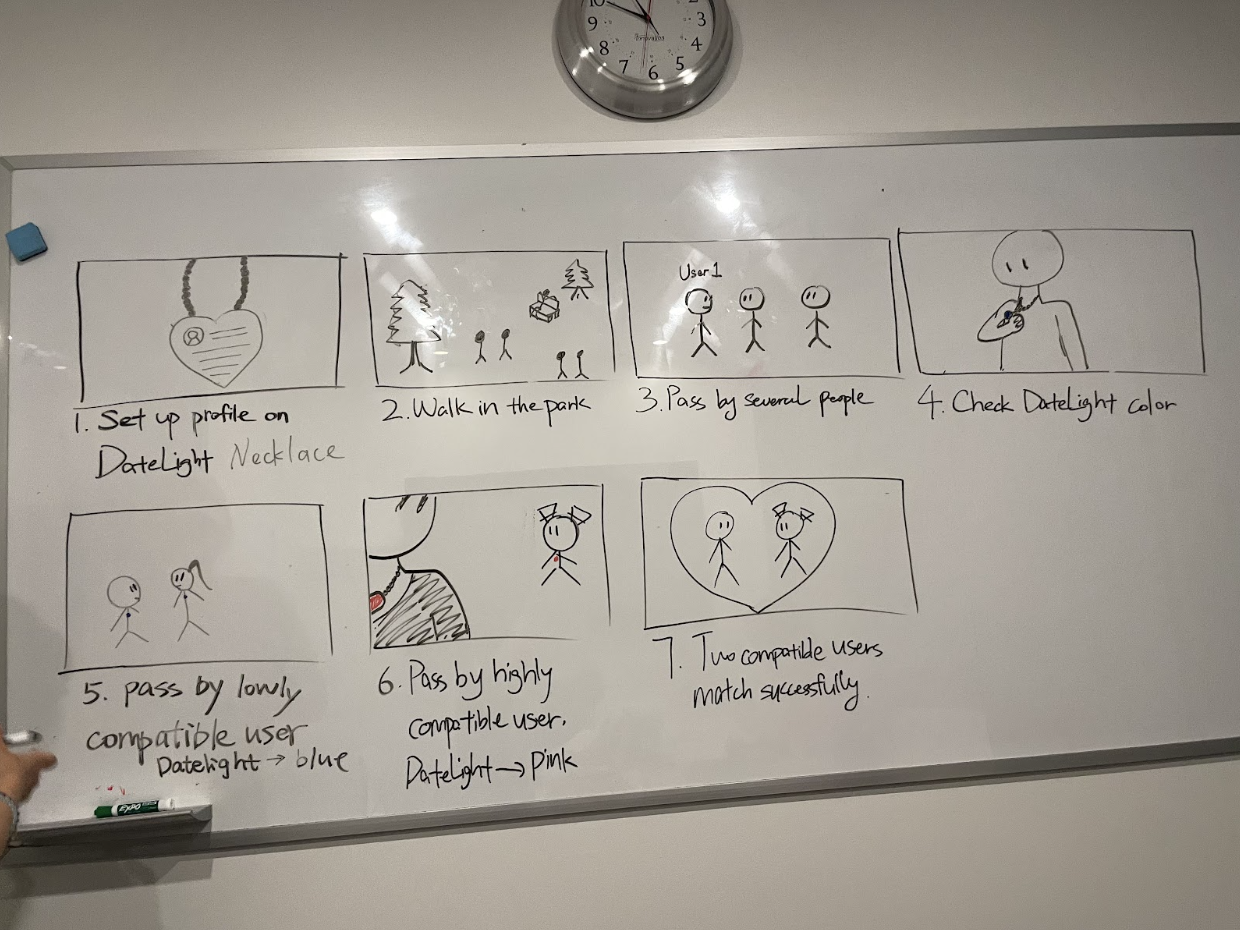 10
2
9
3
8
4
7
6
5
User 1
1. Set up profile on
DateLight Necklace
2. Walk in the park
3. Pass by several people
4. Check DateLight color
5. pass by lowly
compatible user
Datelight → blue
6. Pass by highly
compatible user.
DateLight → Pink
7. Two compatible users
match successfully.
EXPO